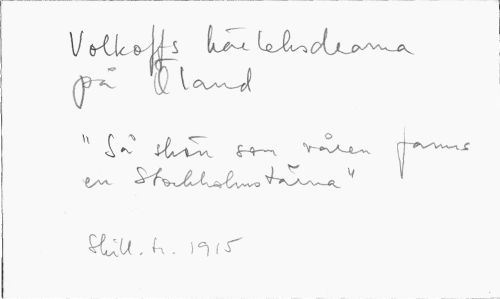 Volkoffs kärleksdrama
på Öland
"Så skön som våren fanns
en Stockholmstärna"
Skill. tr. 1915